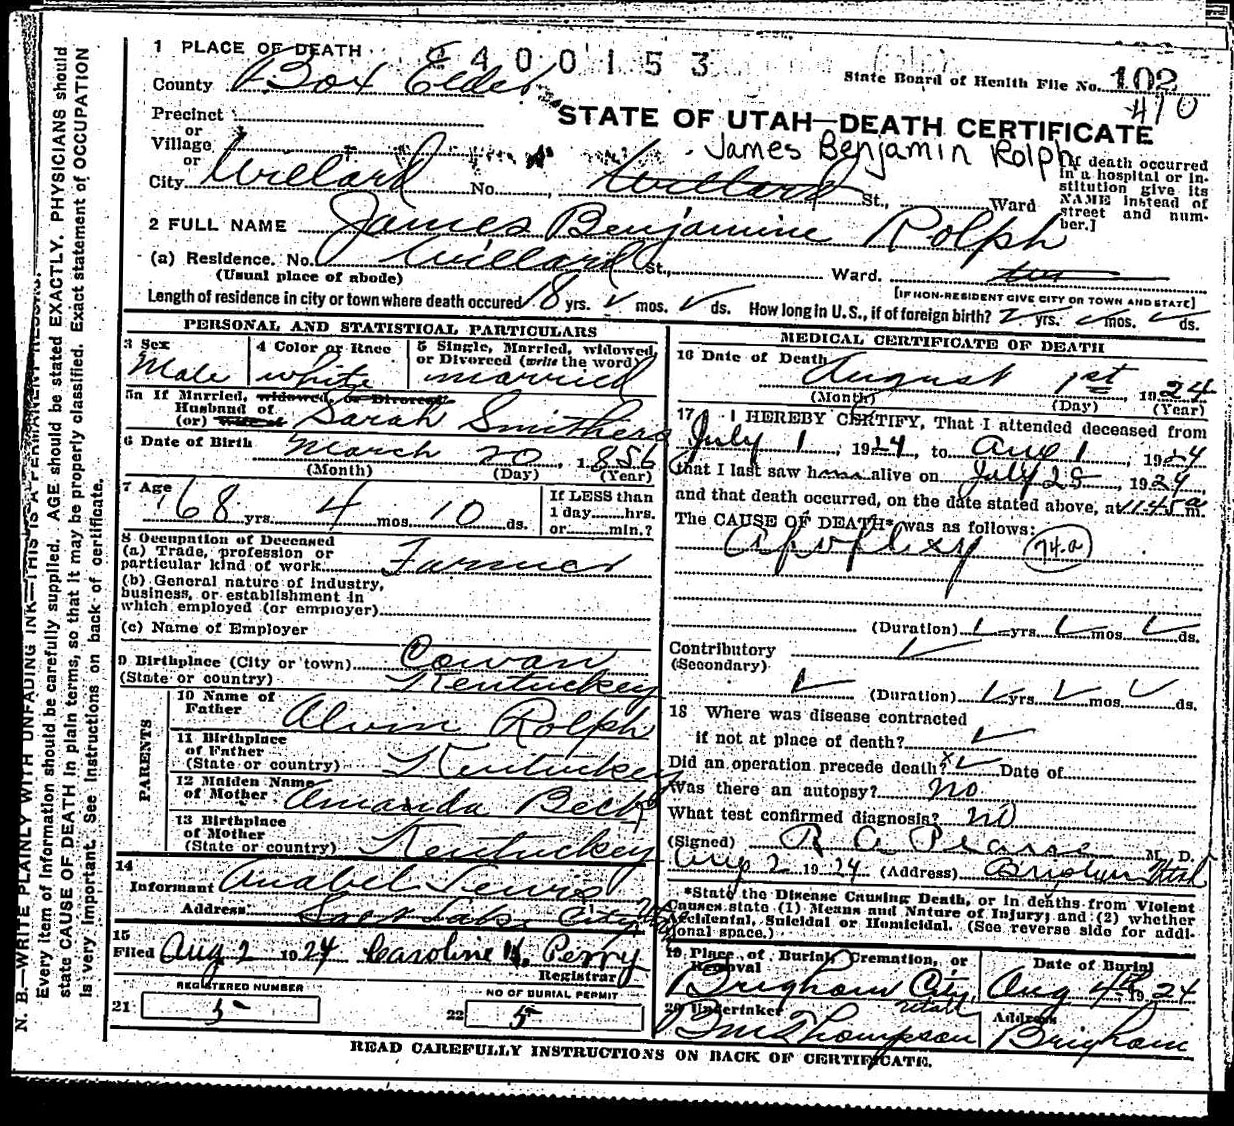 1 PLACE OF DEATH
2400153
State Board of Health File No. 102
410
County Box Elder
Precinct
or
Village
or
City Willard No., Willard St., Ward
STATE OF UTAH—DEATH CERTIFICATE
James Benjamin Rolph
[If death occurred
in a hospital or in-
stitution give its
NAME instead of
street and num-
ber.]
2 FULL NAME James Benjamine Rolph
(a) Residence. No. Willard St., Ward.
(Usual place of abode)
[IF NON-RESIDENT GIVE CITY OR TOWN AND STATE]
Length of residence in city or town where death occured 18 yrs. mos. ds. How long in U. S., if of foreign birth? yrs. mos. ds.
PERSONAL AND STATISTICAL PARTICULARS
3 Sex
Male
4 Color or Race
white
5 Single, Married, widowed
or Divorced (write the word)
married
5a If Married, widowed, or Divorced
Husband of
(or) Wife of
Sarah Smithers
6 Date of Birth March 20, 1856
(Month) (Day) (Year)
7 Age
68 yrs. 4 mos. 10 ds.
If LESS than
1 day......hrs.
or......min.?
8 Occupation of Deceased
(a) Trade, profession or
particular kind of work Farmer
(b) General nature of industry,
business, or establishment in
which employed (or employer)
(c) Name of Employer
9 Birthplace (City or town) Cowan
(State or country) Kentuckey
PARENTS
10 Name of
Father Alvin Rolph
11 Birthplace
of Father
(State or country) Kentuckey
12 Maiden Name
of Mother Amanda Beck
13 Birthplace
of Mother
(State or country) Kentuckey
14
Informant Anabel
Address Salt Lake City
15
Filed Aug 2 1924 Caroline H. Perry
Registrar
REGISTERED NUMBER
21 5
NO OF BURIAL PERMIT
22 5
MEDICAL CERTIFICATE OF DEATH
16 Date of Death August 1st 1924
(Month) (Day) (Year)
17 I HEREBY CERTIFY, That I attended deceased from
July 1, 1924, to Aug 1, 1924
that I last saw him alive on July 25, 1924,
and that death occurred, on the date stated above, at 11.45 a m.
The CAUSE OF DEATH* was as follows:
Apoplexy 74.a
(Duration) yrs. mos. ds.
Contributory
(Secondary)
(Duration) yrs. mos. ds.
18 Where was disease contracted
if not at place of death?
Did an operation precede death? Date of
Was there an autopsy? no
What test confirmed diagnosis? no
(Signed) R A Pearse M. D.
Aug 2 1924 (Address) Brigham Utah
*State the Disease Causing Death, or in deaths from Violent
Causes state (1) Means and Nature of Injury; and (2) whether
Accidental, Suicidal or Homicidal. (See reverse side for addi-
tional space.)
19 Place of Burial, Cremation, or
Removal
Brigham City, Utah
Date of Burial
Aug 4th, 1924
20 Undertaker
Thompson
Address
Brigham
READ CAREFULLY INSTRUCTIONS ON BACK OF CERTIFICATE.
N. B.—WRITE PLAINLY WITH UNFADING INK—THIS IS A PERMANENT RECORD.
Every item of information should be carefully supplied. AGE should be stated EXACTLY. PHYSICIANS should
state CAUSE OF DEATH in plain terms, so that it may be properly classified. Exact statement of OCCUPATION
is very important. See instructions on back of certificate.